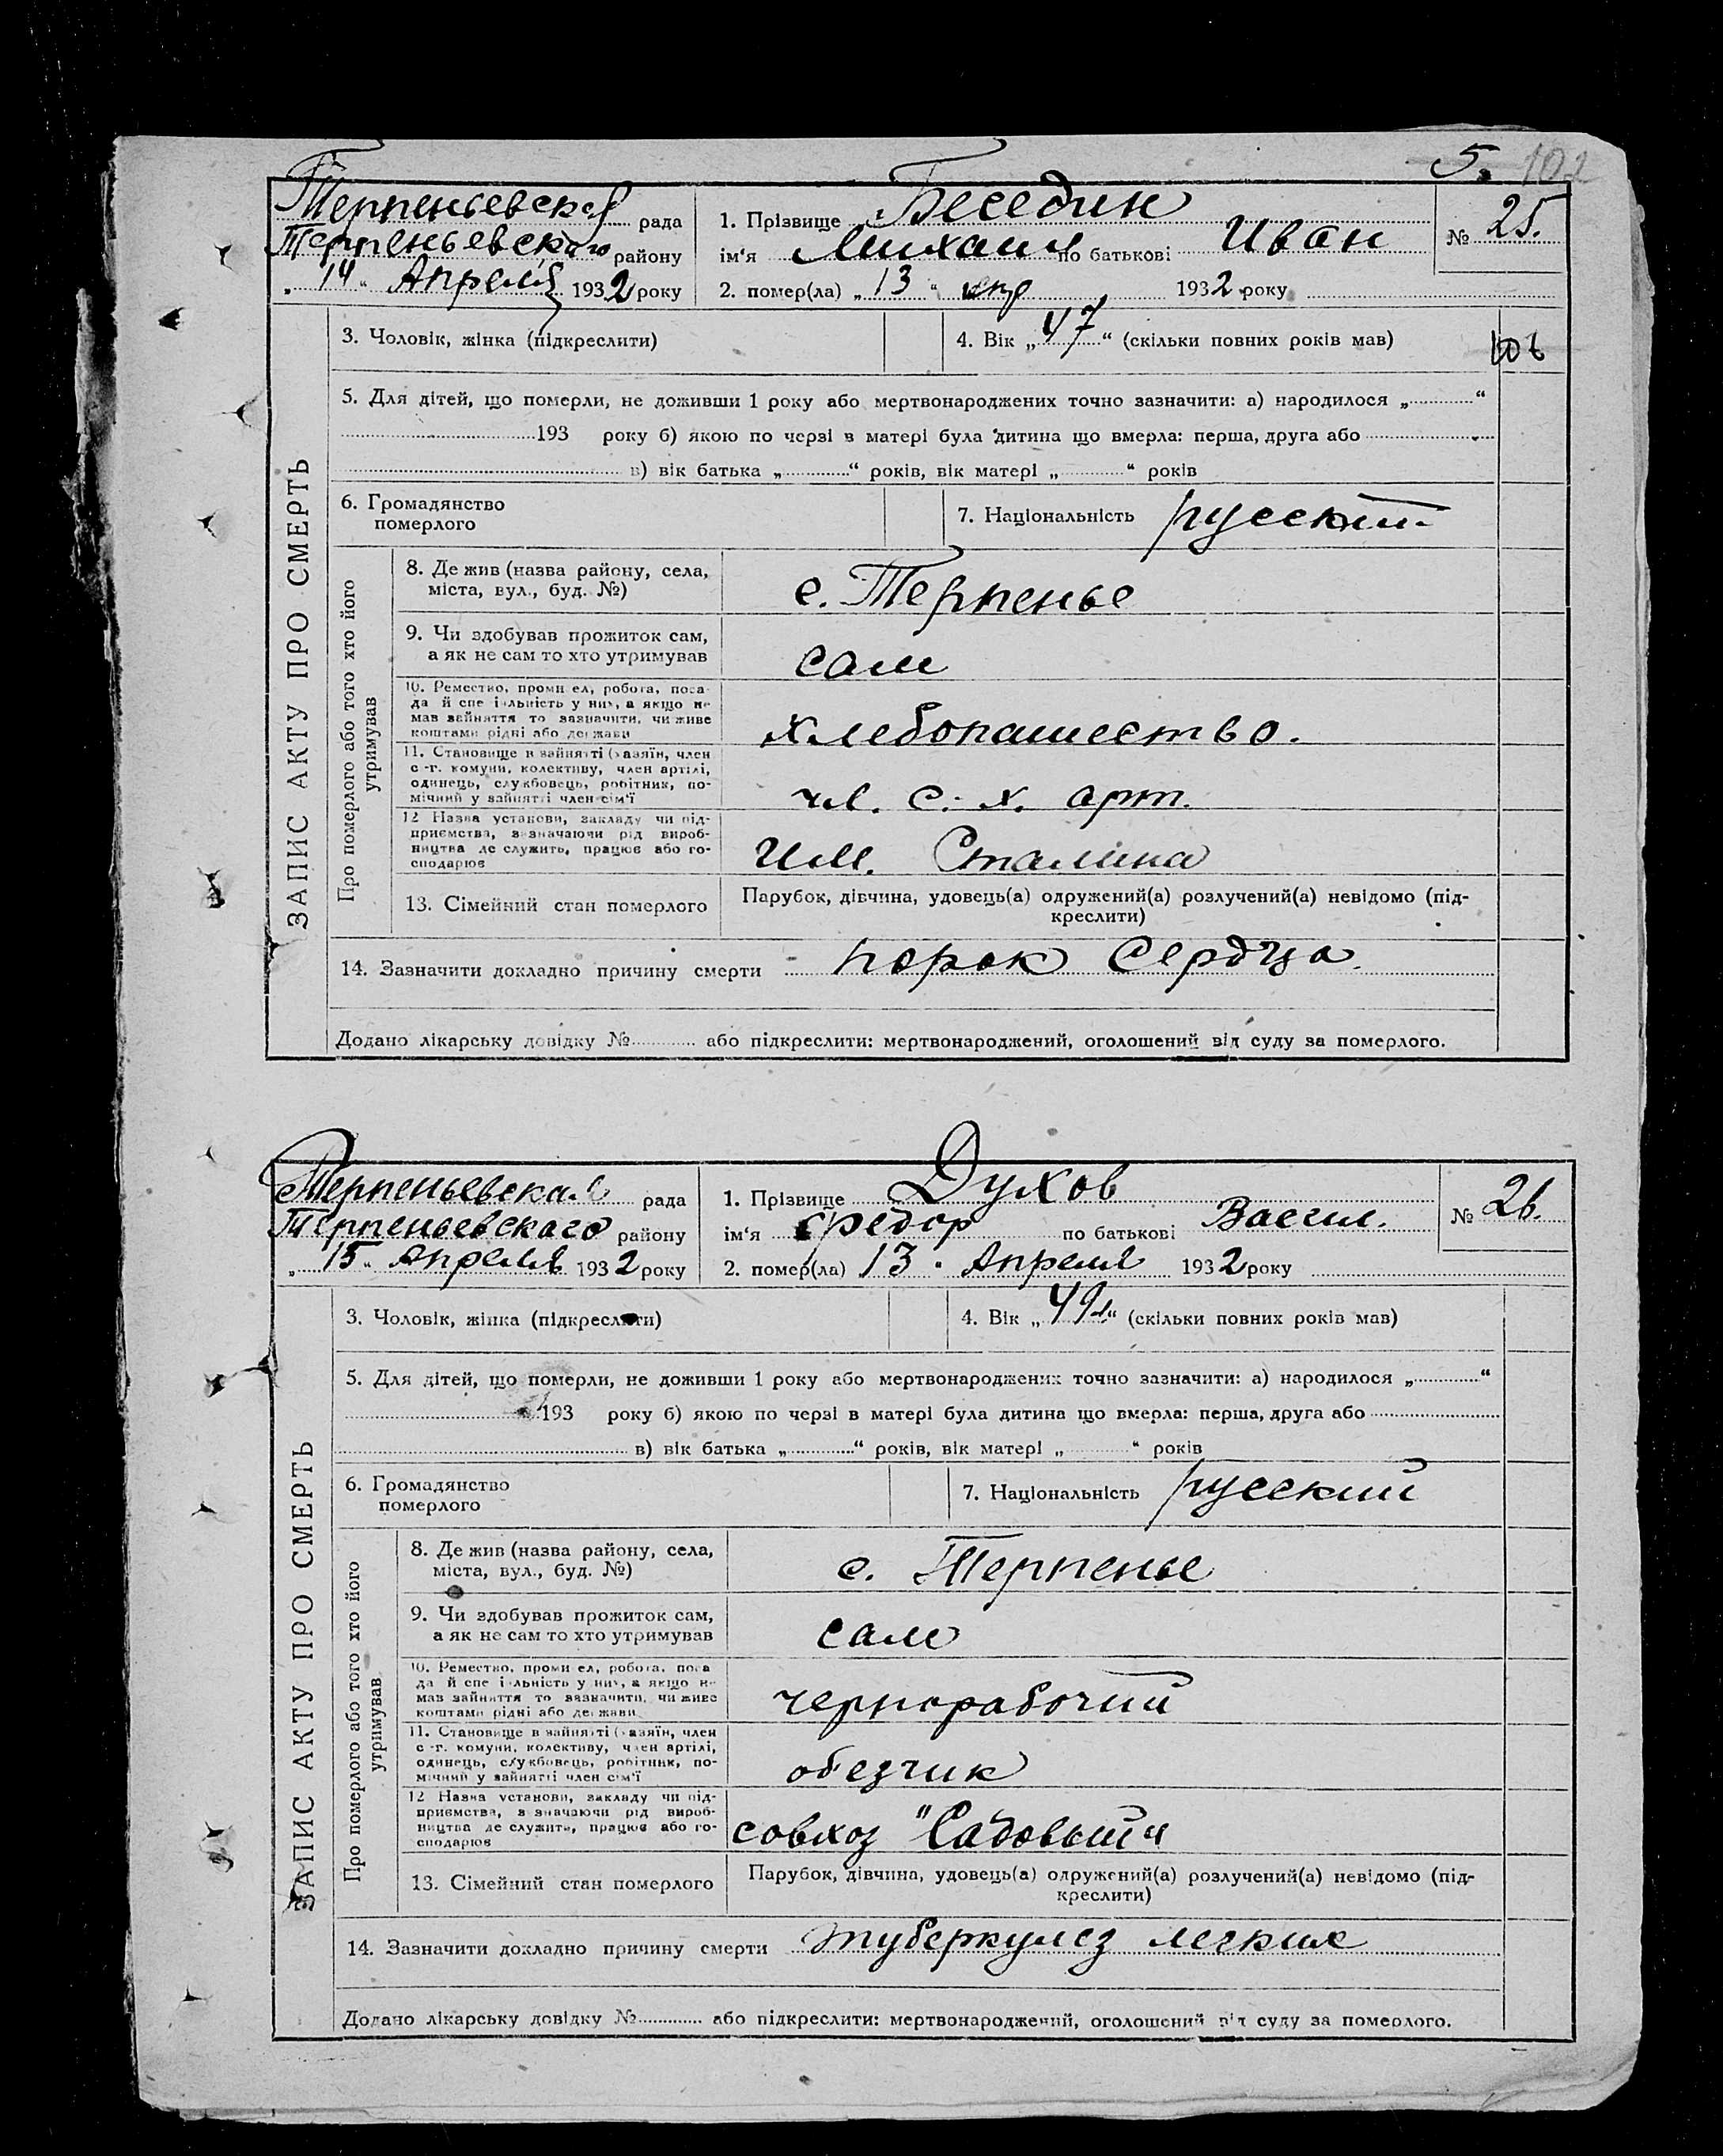 5. 102
Терпеньевская рада 1. Прізвище Беседин № 25.
Терпеньевского району ім'я Михаил по батькові Иван
„ 14 “ Апреля 1932 року 2. помер(ла) „ 13 “ апр 1932 року
3. Чоловік, жінка (підкреслити) 4. Вік „ 47 “ (скільки повних років мав)
5. Для дітей, що померли, не доживши 1 року або мертвонароджених точно зазначити: а) народилося „ “
193 року б) якою по черзі в матері була дитина що вмерла: перша, друга або
в) вік батька „ “ років, вік матері „ “ років
6. Громадянство
померлого
7. Національність русский
ЗАПИС АКТУ ПРО СМЕРТЬ
Про померлого або того хто його
утримував
8. Де жив (назва району, села,
міста, вул., буд. №)
с. Терпенье
9. Чи здобував прожиток сам,
а як не сам то хто утримував
сам
10. Ремество, промисел, робота, поса-
да й спеціяльність у них, а якщо не
мав зайняття то зазначити, чи живе
коштами рідні або держави
хлебопашество.
11. Становище в зайнятті (хазяїн, член
с-г. комуни, колективу, член артілі,
одинець, службовець, робітник, по-
мічний у зайнятті член сім'ї
чл. с. х. арт.
12 Назва установи, закладу чи під-
приємства, зазначаючи рід вироб-
ництва де служить, працює або го-
сподарює
им. Сталина
13. Сімейний стан померлого
Парубок, дівчина, удовець(а) одружений(а) розлучений(а) невідомо (під-
креслити)
14. Зазначити докладно причину смерти порок сердца.
Додано лікарську довідку № або підкреслити: мертвонароджений, оголошений від суду за померлого.
Терпеньевская рада 1. Прізвище Духов № 26.
Терпеньевскаго району ім'я Федор по батькові Васил.
„ 15 “ Апреля 1932 року 2. помер(ла) 13 . Апреля 1932 року
3. Чоловік, жінка (підкреслити) 4. Вік „ 49 л “ (скільки повних років мав)
5. Для дітей, що померли, не доживши 1 року або мертвонароджених точно зазначити: а) народилося „ “
193 року б) якою по черзі в матері була дитина що вмерла: перша, друга або
в) вік батька „ “ років, вік матері „ “ років
6. Громадянство
померлого
7. Національність русский
ЗАПИС АКТУ ПРО СМЕРТЬ
Про померлого або того хто його
утримував
8. Де жив (назва району, села,
міста, вул., буд. №)
с. Терпенье
9. Чи здобував прожиток сам,
а як не сам то хто утримував
сам
10. Ремество, промисел, робота, поса
да й спеціяльність у них, а якщо не
мав зайняття то зазначити, чи живе
коштами рідні або держави
чернорабочий
11. Становище в зайнятті (хазяїн, член
с-г. комуни, колективу, член артілі,
одинець, службовець, робітник, по-
мічний у зайнятті член сім'ї
обезчик
12 Назва установи, закладу чи під-
приємства, зазначаючи рід вироб-
ництва де служить, працює або го-
сподарює
совхоз "Садовый"
13. Сімейний стан померлого
Парубок, дівчина, удовець(а) одружений(а) розлучений(а) невідомо (під-
креслити)
14. Зазначити докладно причину смерти туберкулез легких
Додано лікарську довідку № або підкреслити: мертвонароджений, оголошений від суду за померлого.